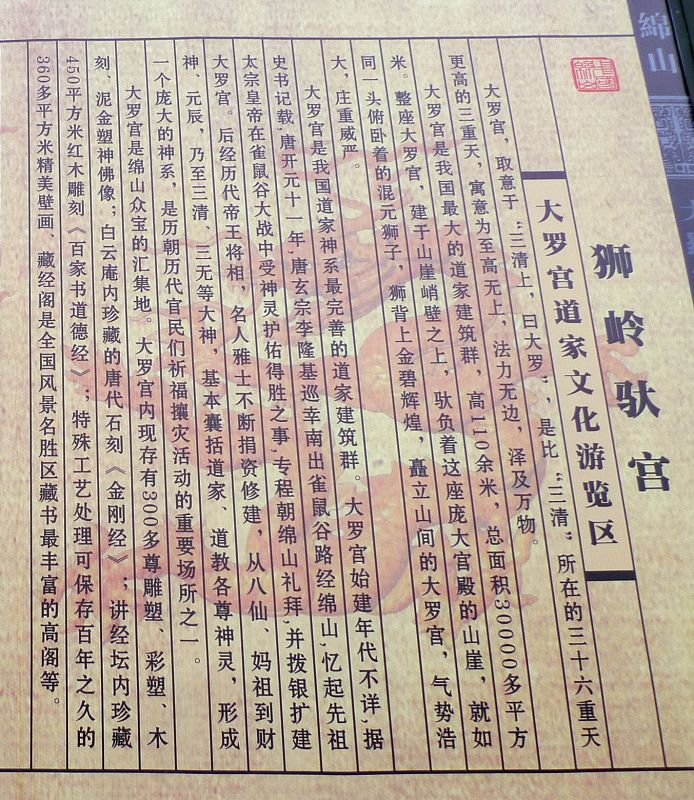 綿山
狮岭驮宫
大罗宫道家文化游览区
大罗宫，取意于“三清上，曰大罗”，是比“三清”所在的三十六重天
更高的三重天，寓意为至高无上，法力无边，泽及万物。
大罗宫是我国最大的道家建筑群，高110余米，总面积30000多平方
米。整座大罗宫，建于山崖峭壁之上，驮负着这座庞大宫殿的山崖，就如
同一头俯卧着的混元狮子，狮背上金碧辉煌，矗立山间的大罗宫，气势浩
大，庄重威严。
大罗宫是我国道家神系最完善的道家建筑群。大罗宫始建年代不详,据
史书记载,唐开元十一年,唐玄宗李隆基巡幸南出雀鼠谷路经绵山,忆起先祖
太宗皇帝在雀鼠谷大战中受神灵护佑得胜之事,专程朝绵山礼拜,并拨银扩建
大罗宫。后经历代帝王将相，名人雅士不断捐资修建，从八仙、妈祖到财
神、元辰，乃至三清、三无等大神，基本囊括道家、道教各尊神灵，形成
一个庞大的神系，是历朝历代官民们祈福攘灾活动的重要场所之一。
大罗宫是绵山众宝的汇集地。大罗宫内现存有300多尊雕塑、彩塑、木
刻、泥金塑神佛像；白云庵内珍藏的唐代石刻《金刚经》；讲经坛内珍藏
450平方米红木雕刻《百家书道德经》；特殊工艺处理可保存百年之久的
360多平方米精美壁画、藏经阁是全国风景名胜区藏书最丰富的高阁等。